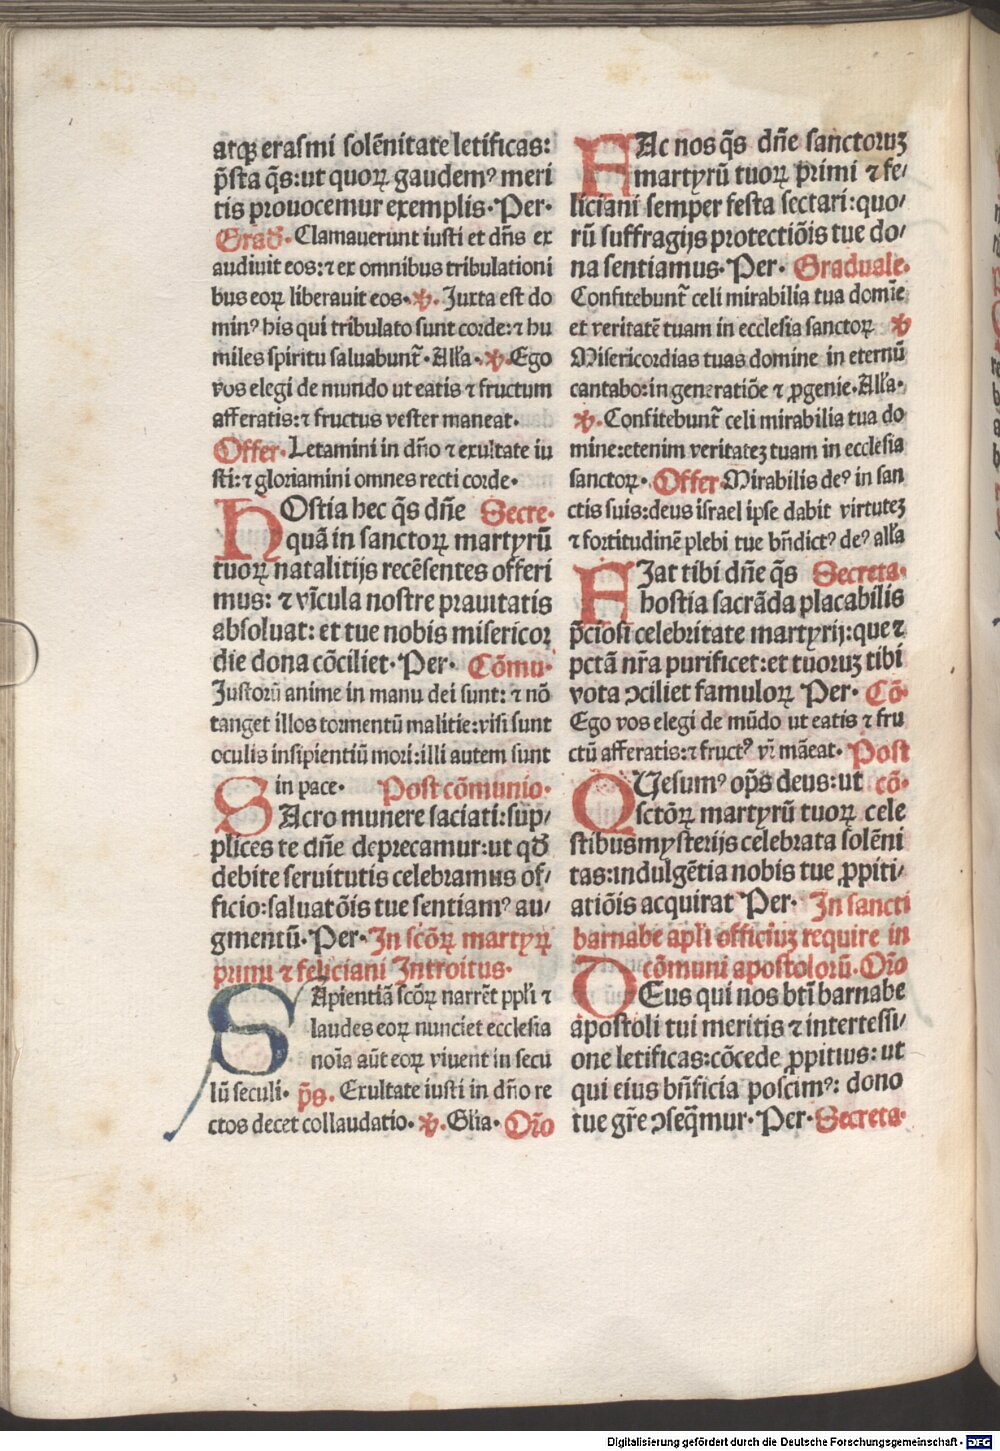 atqꝫ erasmi solēnitate letificas:
p̄sta q̄s: ut quoꝝ gaudemꝰ meri
tis prouocemur exemplis. Per.
Grad̄. Clamauerunt iusti et dn̄s ex
audiuit eos: ⁊ ex omnibus tribulationi
bus eoꝝ liberauit eos. ℣. Juxta est do
minꝰ his qui tribulato sunt corde: ⁊ hu
miles spiritu saluabunt̄. Alľa. ℣. Ego
vos elegi de mundo ut eatis ⁊ fructum
afferatis: ⁊ fructus vester maneat.
Offer. Letamini in dn̄o ⁊ exultate iu
sti: ⁊ gloriamini omnes recti corde.
HOstia hec q̄s dn̄e Secre.
quā in sanctoꝝ martyrū
tuoꝝ natalitijs recēsentes offeri
mus: ⁊ vīcula nostre prauitatis
absoluat: et tue nobis misericor
die dona cōciliet. Per. Cōmu.
Justorū anime in manu dei sunt: ⁊ nō
tanget illos tormentū malitie: visi sunt
oculis insipientiū mori: illi autem sunt
in pace. Post cōmunio.
SAcro munere saciati: sup/
plices te dn̄e deprecamur: ut qđ
debite seruitutis celebramus of/
ficio: saluatōis tue sentiamꝰ au/
gmentū. Per. In scōꝝ martyꝝ
primi ⁊ feliciani Introitus.
SApientiā scōꝝ narrēt ppľi ⁊
laudes eoꝝ nunciet ecclesia
noīa aūt eoꝝ viuent in secu
lū seculi. p̄s. Exultate iusti in dn̄o re
ctos decet collaudatio. ℣. Glīa. Or̄o
FAc nos q̄s dn̄e sanctoruꝫ
martyrū tuoꝝ primi ⁊ fe/
liciani semper festa sectari: quo/
rū suffragijs protectiōis tue do/
na sentiamus. Per. Graduale.
Confitebunt̄ celi mirabilia tua domīe
et veritatē tuam in ecclesia sanctoꝝ ℣
Misericordias tuas domine in eternū
cantabo: in generatiōe ⁊ ꝓgenie. Alľa.
℣. Confitebunt̄ celi mirabilia tua do
mine: etenim veritateꝫ tuam in ecclesia
sanctoꝝ. Offer. Mirabilis deꝰ in san
ctis suis: deus israel ipse dabit virtuteꝫ
⁊ fortitudinē plebi tue bn̄dictꝰ deꝰ alľa
FIat tibi dn̄e q̄s Secreta.
hostia sacrāda placabilis
p̄ciosi celebritate martyrij: que ⁊
pctā nr̄a purificet: et tuoruꝫ tibi
vota ↄciliet famuloꝝ Per. Cō.
Ego vos elegi de mūdo ut eatis ⁊ fru
ctū afferatis: ⁊ fructꝰ vr̄ māeat. Post
QUesumꝰ op̄s deus: ut cō.
sctōꝝ martyrū tuoꝝ cele
stibus mysterijs celebrata solēni
tas: indulgētia nobis tue ꝓpiti/
atiōis acquirat Per. In sancti
barnabe apľi officiuꝫ require in
cōmuni apostolorū. Or̄o
DEus qui nos btī barnabe
apostoli tui meritis ⁊ intertessi/
one letificas: cōcede ꝓpitius: ut
qui eius bn̄ficia poscimꝰ: dono
tue gr̄e ↄseq̄mur. Per. Secreta.
Digitalisierung gefördert durch die Deutsche Forschungsgemeinschaft - DFG